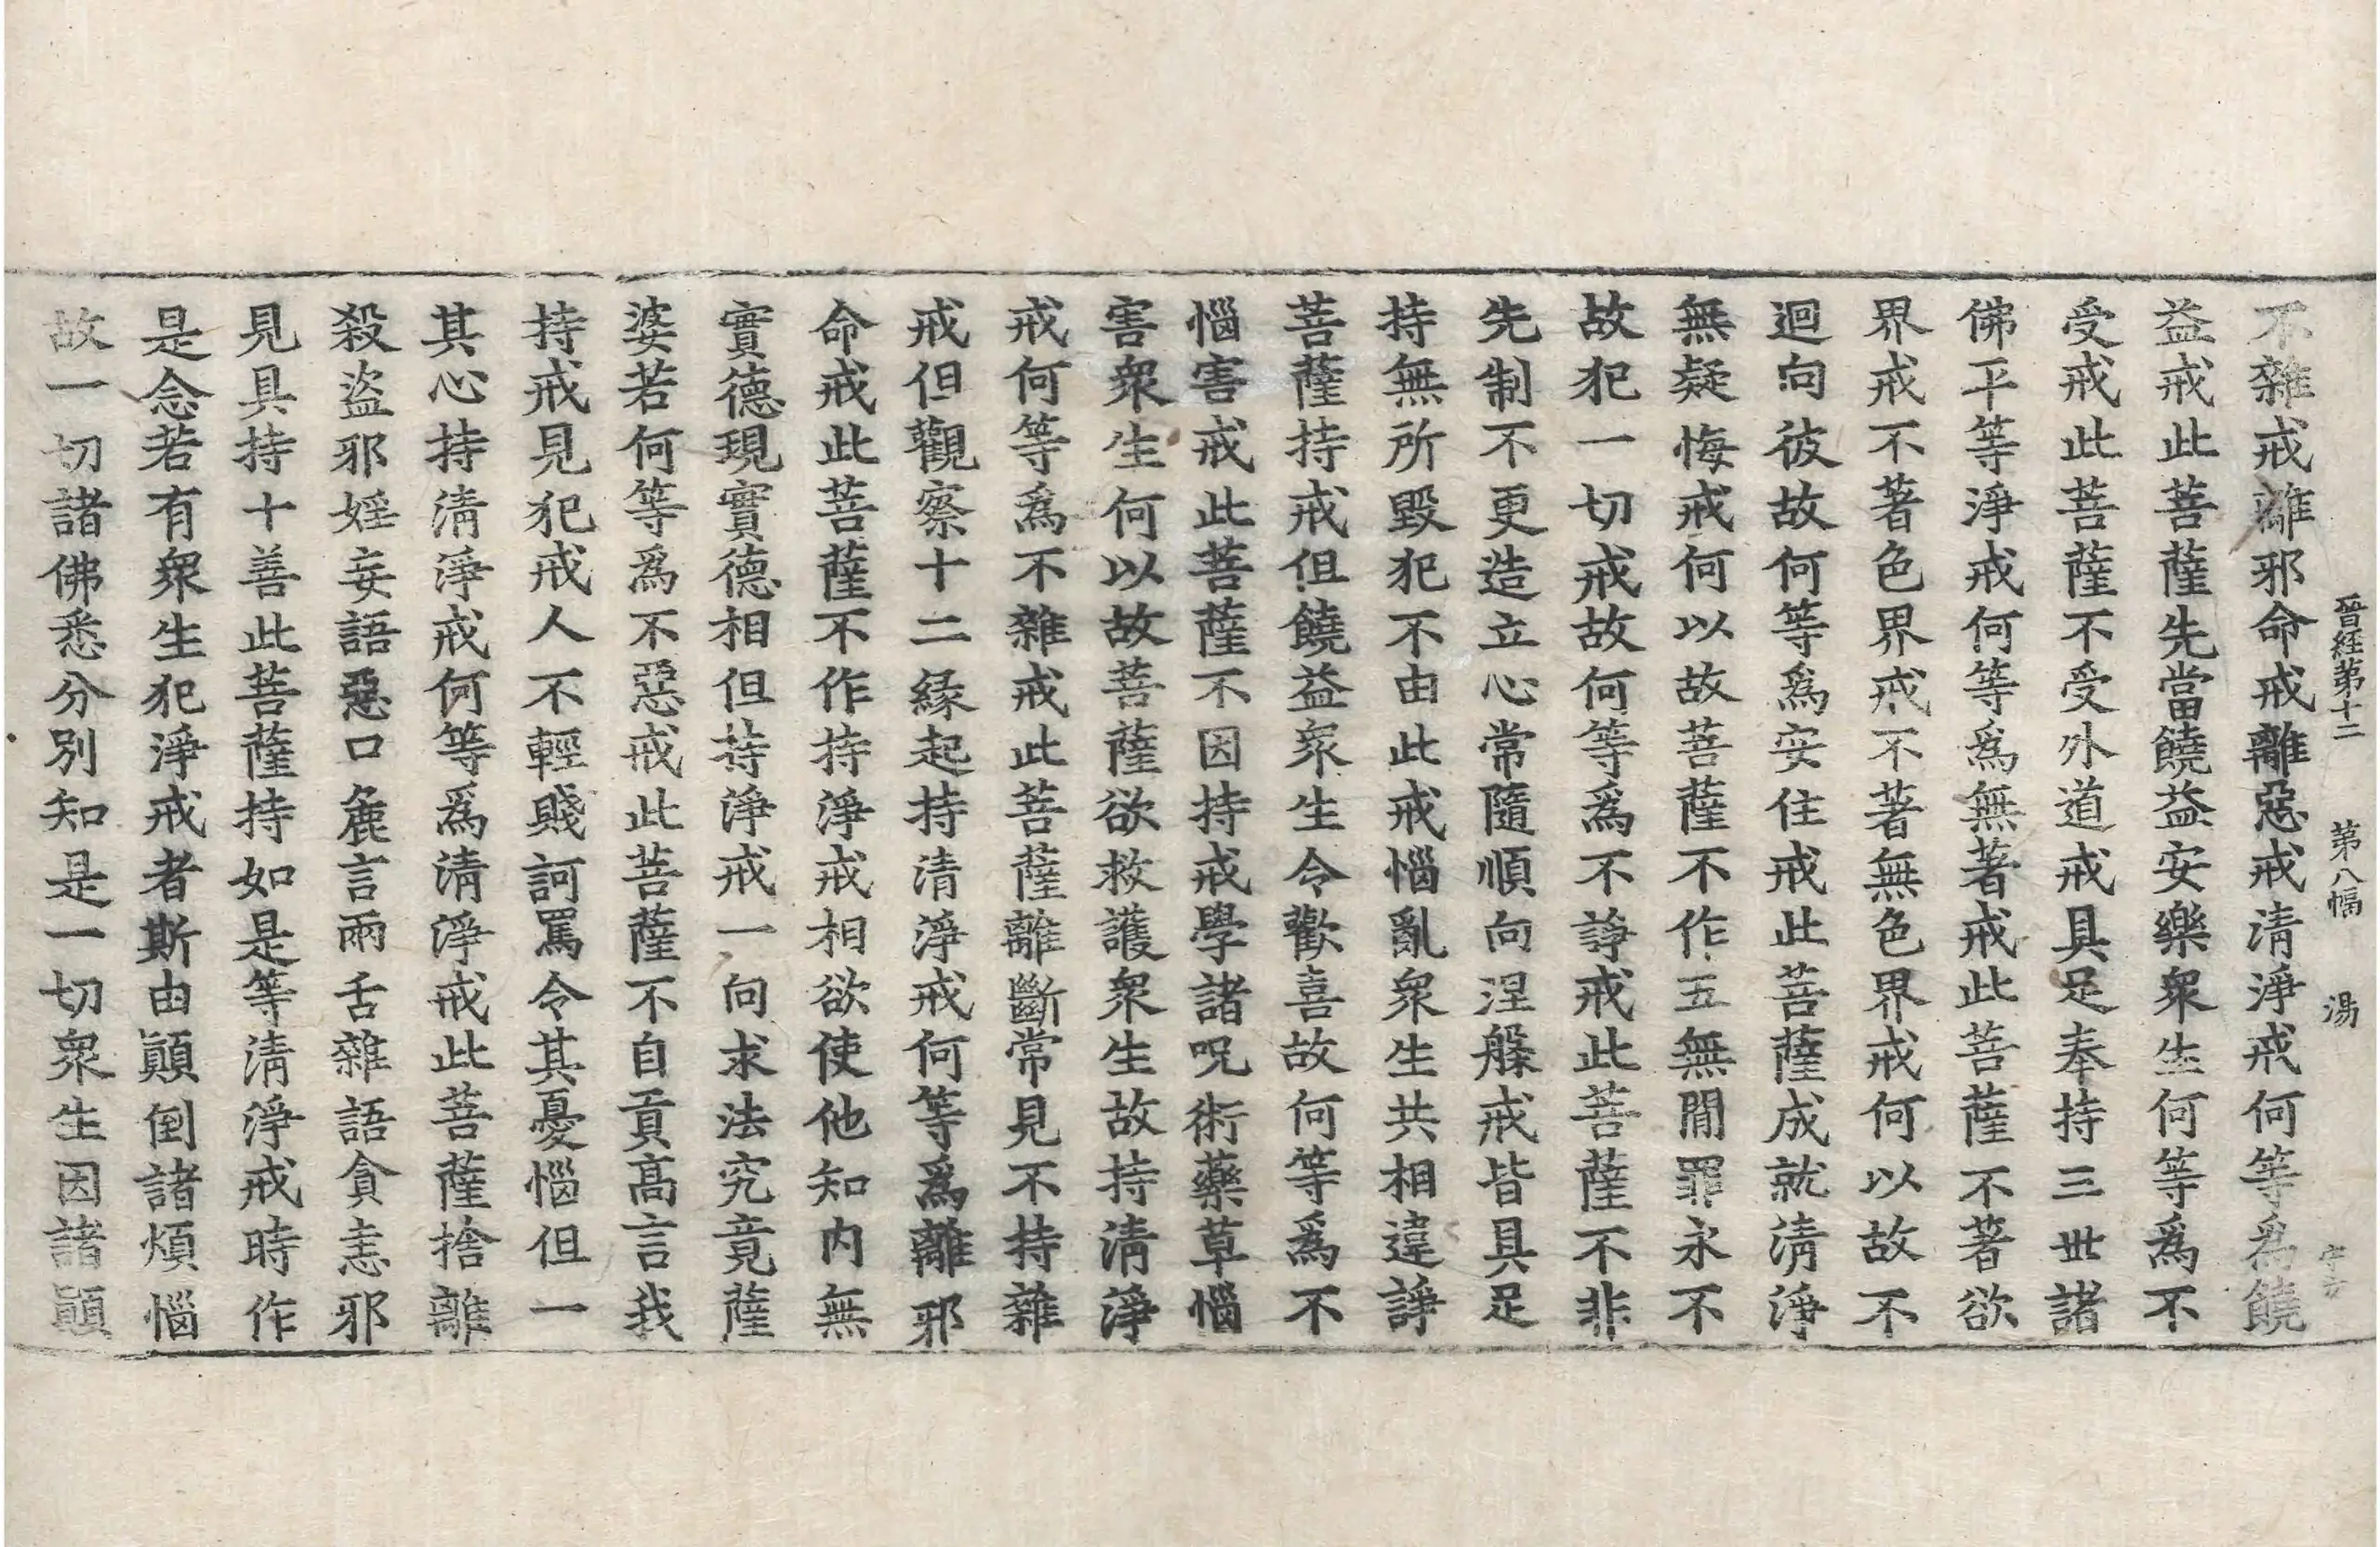 晉経第十二 第八幅 湯
不雜戒離邪命戒離惡戒清淨戒何等爲饒
益戒此菩薩先當饒益安樂衆生何等爲不
受戒此菩薩不受外道戒具足奉持三世諸
佛平等淨戒何等爲無著戒此菩薩不著欲
界戒不著色界戒不著無色界戒何以故不
迴向彼故何等爲安住戒此菩薩成就清淨
無疑悔戒何以故菩薩不作五無閒罪永不
故犯一切戒故何等爲不諍戒此菩薩不非
先制不更造立心常隨順向涅槃戒皆具足
持無所毀犯不由此戒惱亂衆生共相違諍
菩薩持戒但饒益衆生令歡喜故何等爲不
惱害戒此菩薩不因持戒學諸呪術藥草惱
害衆生何以故菩薩欲救護衆生故持清淨
戒何等爲不雜戒此菩薩離斷常見不持雜
戒但觀察十二縁起持清淨戒何等爲離邪
命戒此菩薩不作持淨戒相欲使他知内無
實德現實德相但持淨戒一向求法究竟薩
婆若何等爲不惡戒此菩薩不自貢高言我
持戒見犯戒人不輕賤訶罵令其憂惱但一
其心持清淨戒何等爲清淨戒此菩薩捨離
殺盜邪婬妄語惡口麁言兩舌雜語貪恚邪
見具持十善此菩薩持如是等清淨戒時作
是念若有衆生犯淨戒者斯由顚倒諸煩惱
故一切諸佛悉分別知是一切衆生因諸顚